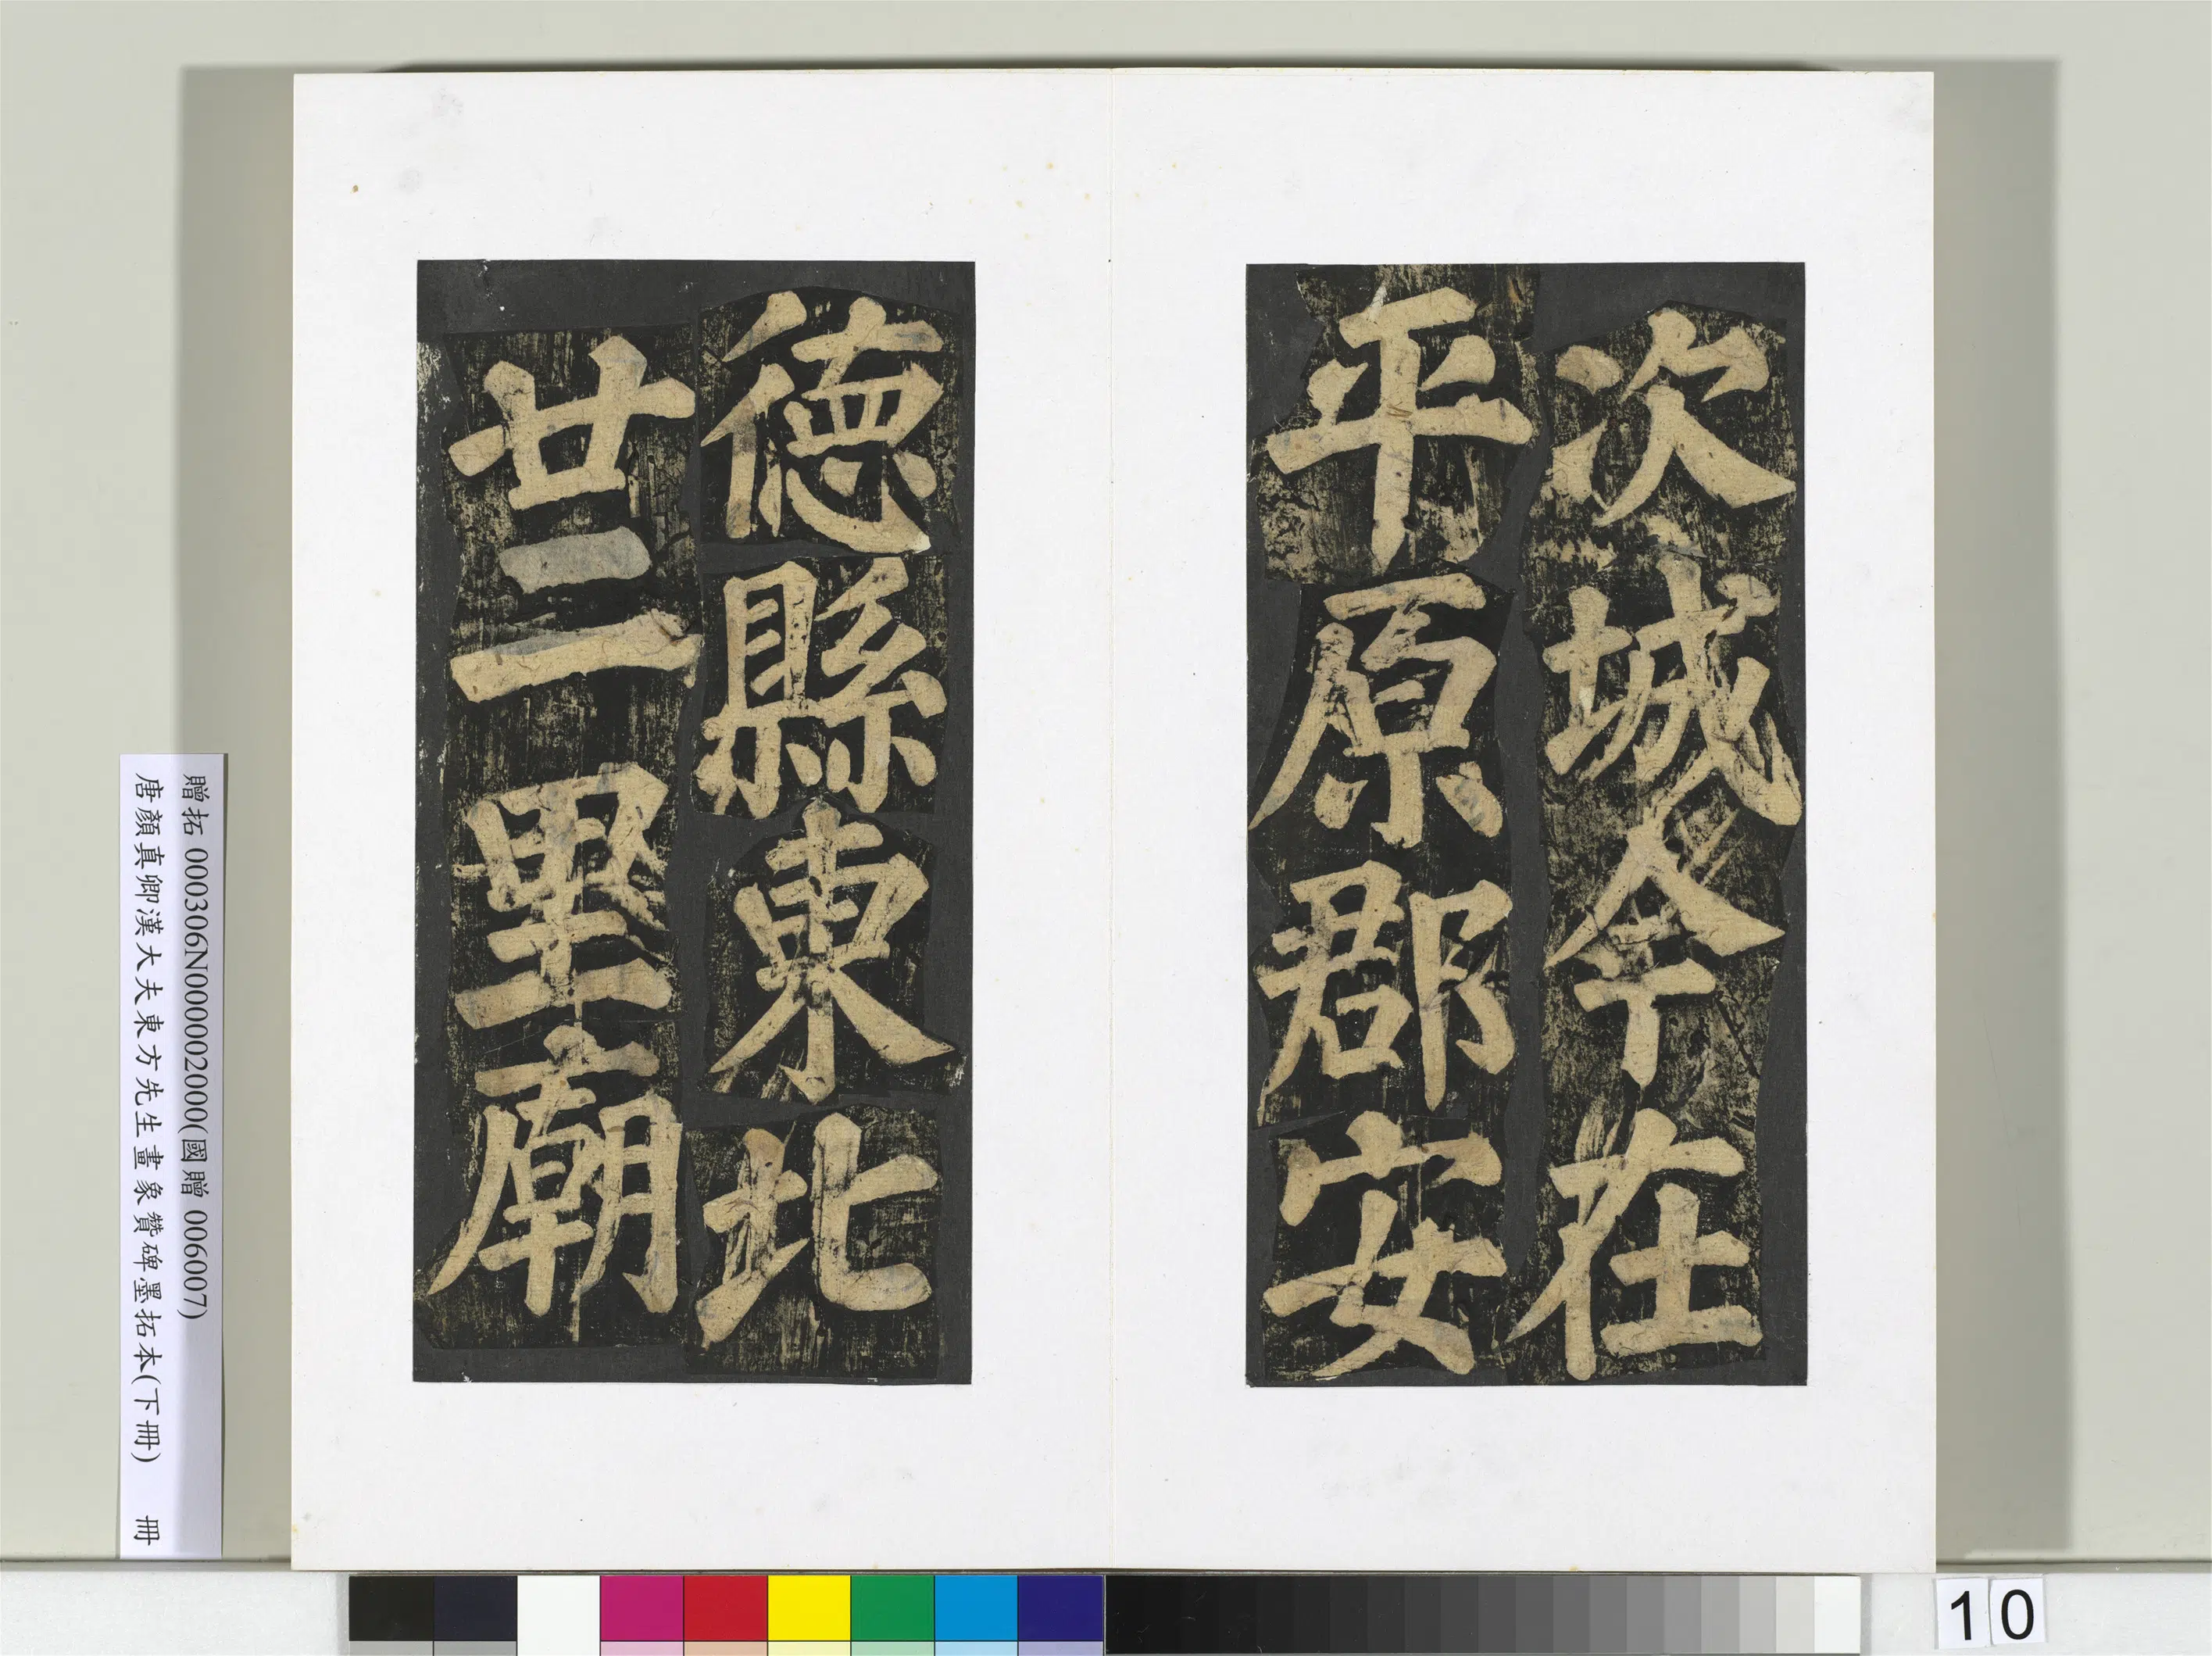 次城今在
平原郡安
德縣東北
廿二里廟
贈拓 000306N000002000(國贈 006007)
唐顏真卿漢大夫東方先生畫象贊碑墨拓本(下冊) 冊
10